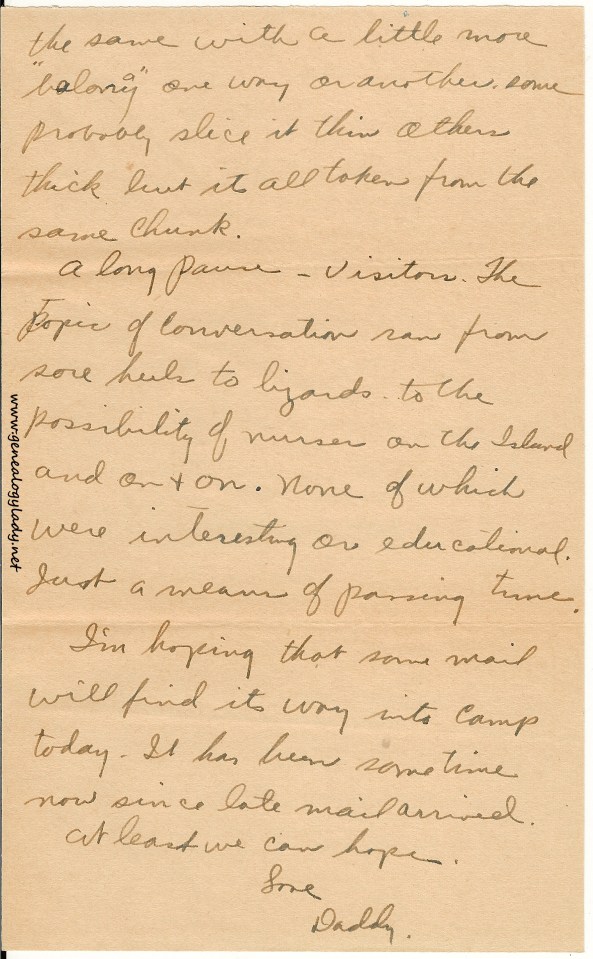 the same with a little more
"balony" one way or another. some
probably slice it thin others
thick but its all taken from the
same chunk.
A long pause – Visitors. The
topic of conversation ran from
sore heels to lizards. to the
possibility of nurses on the Island
and on + on. None of which
were interesting or educational.
Just a means of passing time.
I'm hoping that some mail
will find its way into camp
today. It has been sometime
now since late mail arrived.
At least we can hope.
Love
Daddy.
www.genealogylady.net